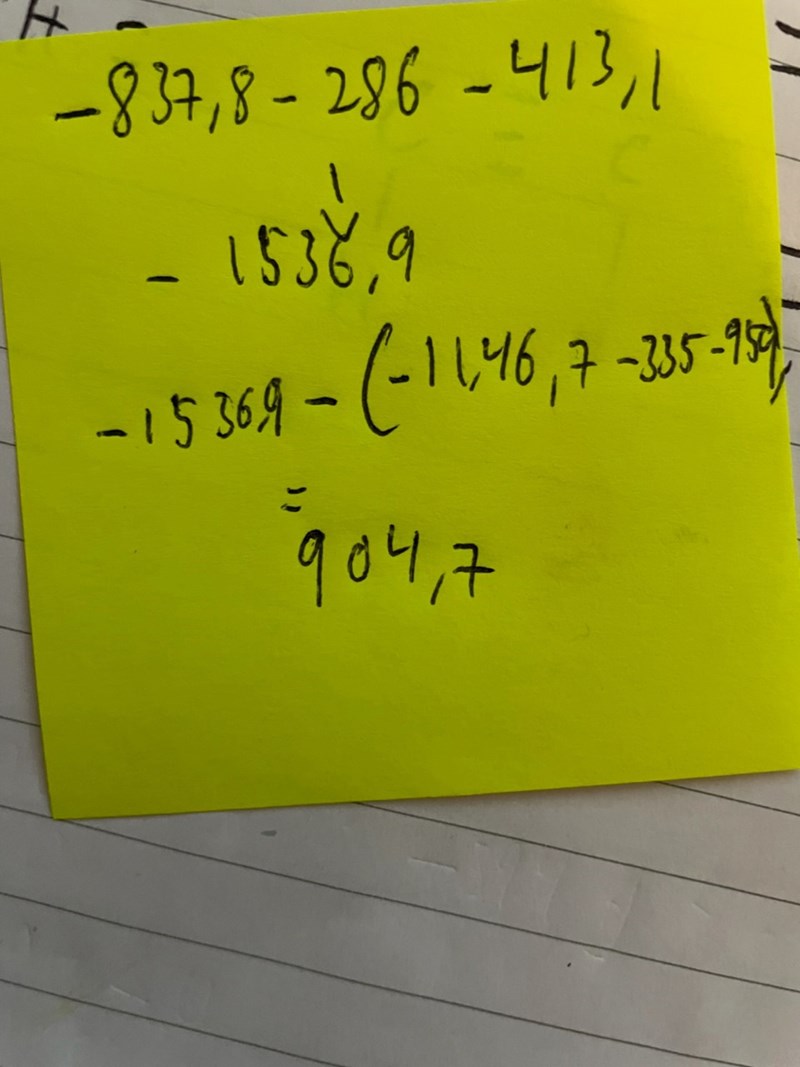 -837,8 - 286 - 413,1
1
- 1536,9
-1536,9 - (-11,46,7 -335 -959),
=
904,7